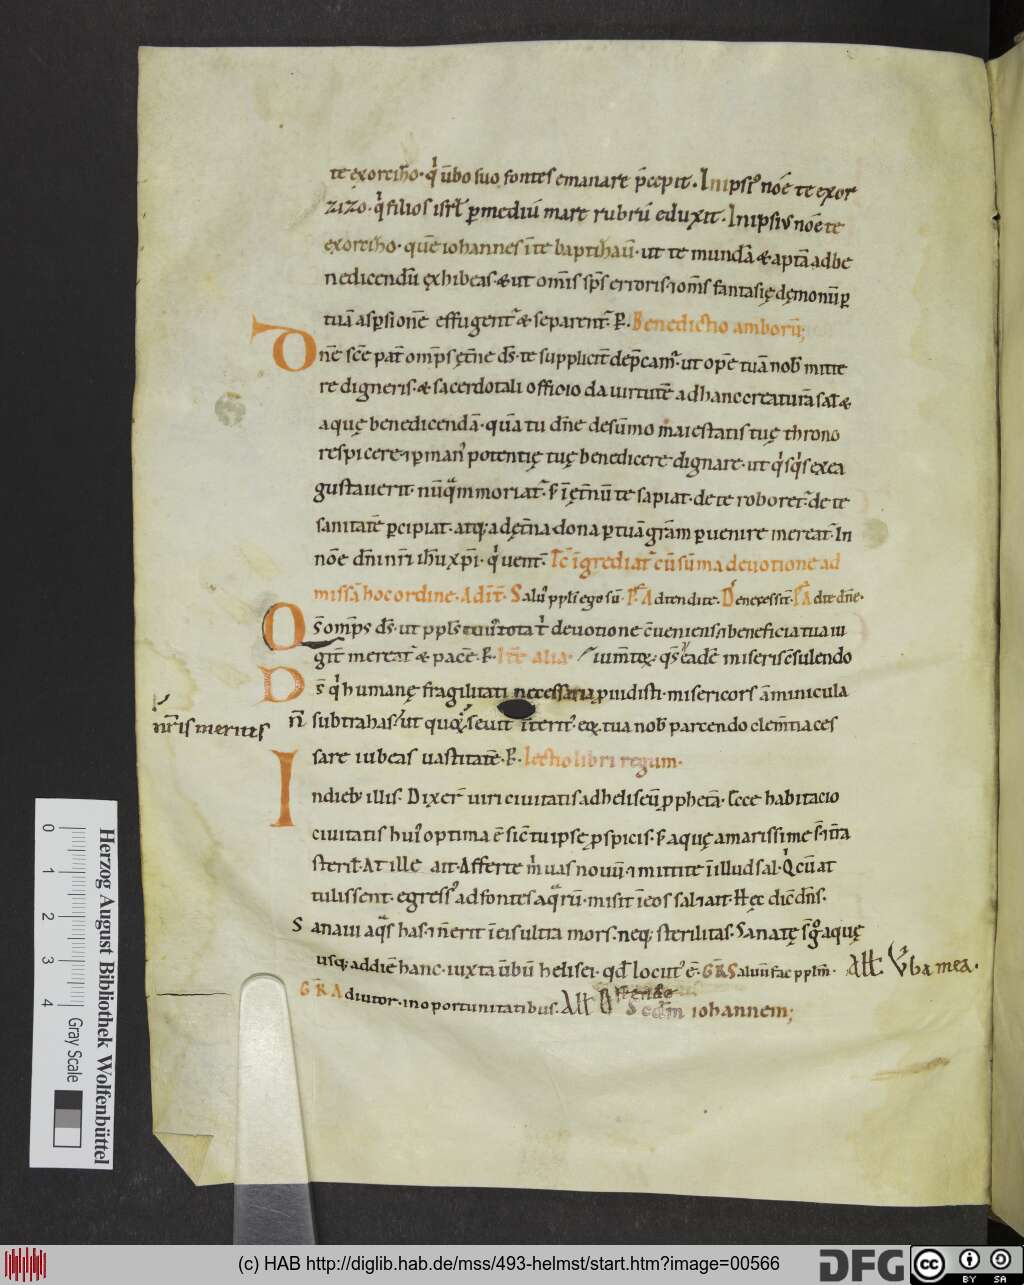 te exorcizo · qͥ ūbo suo fontes emanare p̄cepit · In ipsiꝰ nōe te exor
zizo · qͥ filios isrl̄ ꝑ mediū mare rubrū eduxit · In ipsius nōe te
exorcizo · quē iohannes ī te baptizauit · ut te mundā & aptā ad be
nedicendū ęxhibeas · & ut om̄is sp̄s erroris · ⁊ om̄s fantasię dęmonū ꝑ
tuā asꝑsionē effugent᷑ & separent᷑ · Benedictio amborū;
Dn̄e sc̄e pat̄ omp̄s ęt̄ne d̄s · te supplicit̄ dep̄cam᷑ · ut opē tuā nob̄ mitte
re digneris · & sacerdotali officio da uirtutē ad hanc creaturā sal̄ &
aquę benedicendā · quā tu dn̄e de sūmo maiestatis tuę throno
respicere · ⁊ ꝑ manꝰ potentię tuę benedicere dignare · ut qͥsqͥs ex ea
gustauerit · nūqͣm moriat᷑ · s; ī ęt̄nū te sapiat · de te roboret᷑ · de te
sanitatē ꝑcipiat · atq; ad ęt̄na dona ꝑ tuā grām ꝑuenire mereat᷑ · In
nōe dn̄i nr̄i ih̄u xp̄i · qͥ uent̄ · Tc̄ īgrediat᷑ cū sūma deuotione ad
missā hoc ordine · Ad īt̄ · Salus ppl̄i ego sū · Ps̄ Adtendite · Dͬ enexessit · Adte dn̄e ·
Qs̄ omp̄s d̄s · ut ppl̄s tuus tota t̄ deuotione c̄ueniens · ⁊ beneficia tua iu
git̄ mereat᷑ & pacē · Itē alia ·
Ds̄ qͥ humanę fragilitati necessaria ꝑuidisti · misericors āminicula
n̄ subtrahas · ut
nr̄is meritis
tua nob̄ parcendo clem̄tia ces
sare iubeas uastitatē · Lectio libri regum ·
In dieb; illis · Dixer̄ uiri ciuitatis ad heliseū ꝓphetā · Ecce habitacio
ciuitatis huiꝰ optima ē sic̄ tu ipsę ꝑspicis · s; aquę amarissime s̄ · ⁊ t̄ra
steril̄ · At ille ait · Afferte m̄ uas nouū · ⁊ mittite ī illud sal · Qͥ cū at
tulissent · egressꝰ ad fontes aqͣrū · misit ī eos sal ⁊ ait · Hęc dic̄ dn̄s ·
Sanaui aqͣs has · ⁊ n̄ erit ī eis ultra mors · neq; sterilitas · Sanatę s̄ gͦ aquę
usq; ad diē hanc · iuxta ūbū helisei · qd̄ locutꝰ ē · GR̄ Saluū fac ppl̄m · All̄ · Ūba mea ·
GR̄ Adiutor · in oportunitatibus · All̄ Secdm̄ iohannem;
Herzog August Bibliothek Wolfenbüttel
0 1 2 3 4
Gray Scale
(c) HAB http://diglib.hab.de/mss/493-helmst/start.htm?image=00566
DFG
cc
BY SA